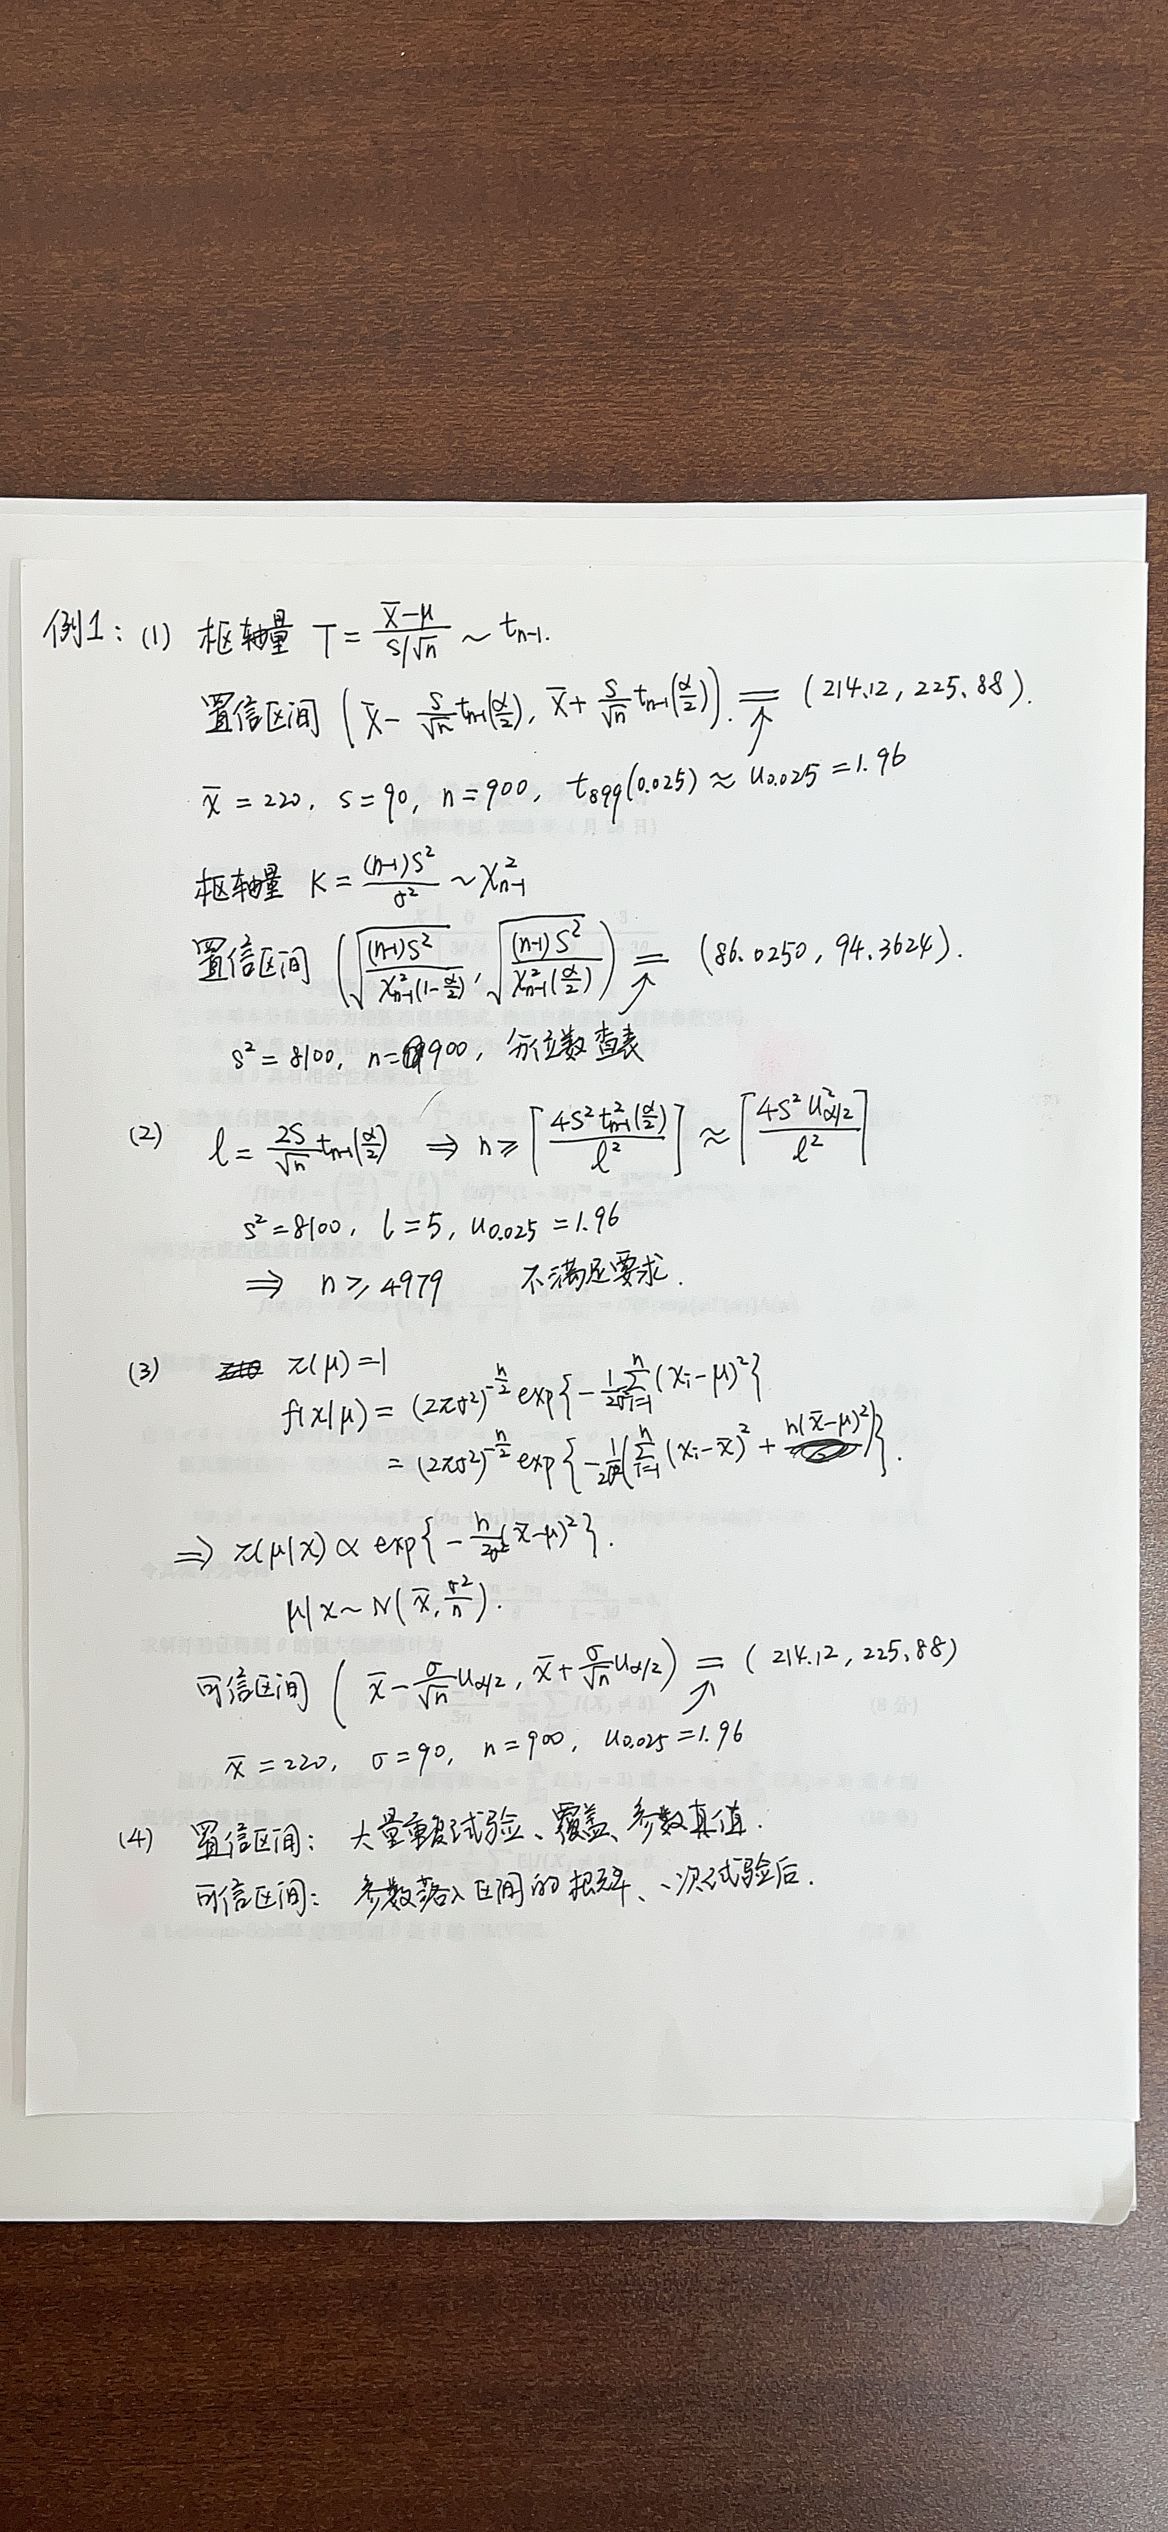 例1: (1) 枢轴量 T = (x̄-μ)/(s/√n) ~ t_{n-1}.
置信区间 (x̄ - s/√n t_{n-1}(α/2), x̄ + s/√n t_{n-1}(α/2)). = (214.12, 225.88).
x̄ = 220, s = 90, n = 900, t_{899}(0.025) ≈ u_{0.025} = 1.96
枢轴量 K = (n-1)S²/σ² ~ χ²_{n-1}
置信区间 (√((n-1)S²/χ²_{n-1}(1-α/2)), √((n-1)S²/χ²_{n-1}(α/2))) = (86.0250, 94.3624).
s² = 8100, n = 900, 分位数查表
(2) l = 2S/√n t_{n-1}(α/2) ⇒ n ≥ ⌈4S² t²_{n-1}(α/2)/l²⌉ ≈ ⌈4S² u²_{α/2}/l²⌉
s² = 8100, l = 5, u_{0.025} = 1.96
⇒ n ≥ 4979 不满足要求.
(3) π(μ) = 1
f(x|μ) = (2πσ²)^{-n/2} exp{-1/2σ² Σ_{i=1}^{n} (xᵢ-μ)²}
= (2πσ²)^{-n/2} exp{-1/2σ² (Σ_{i=1}^{n} (xᵢ-x̄)² + n(x̄-μ)²)}.
⇒ π(μ|x) ∝ exp{-n/2σ² (x̄-μ)²}.
μ|x ~ N(x̄, σ²/n).
可信区间 (x̄ - σ/√n u_{α/2}, x̄ + σ/√n u_{α/2}) = (214.12, 225.88)
x̄ = 220, σ = 90, n = 900, u_{0.025} = 1.96
(4) 置信区间: 大量重复试验、覆盖、参数真值.
可信区间: 参数落入区间的概率、一次试验后.